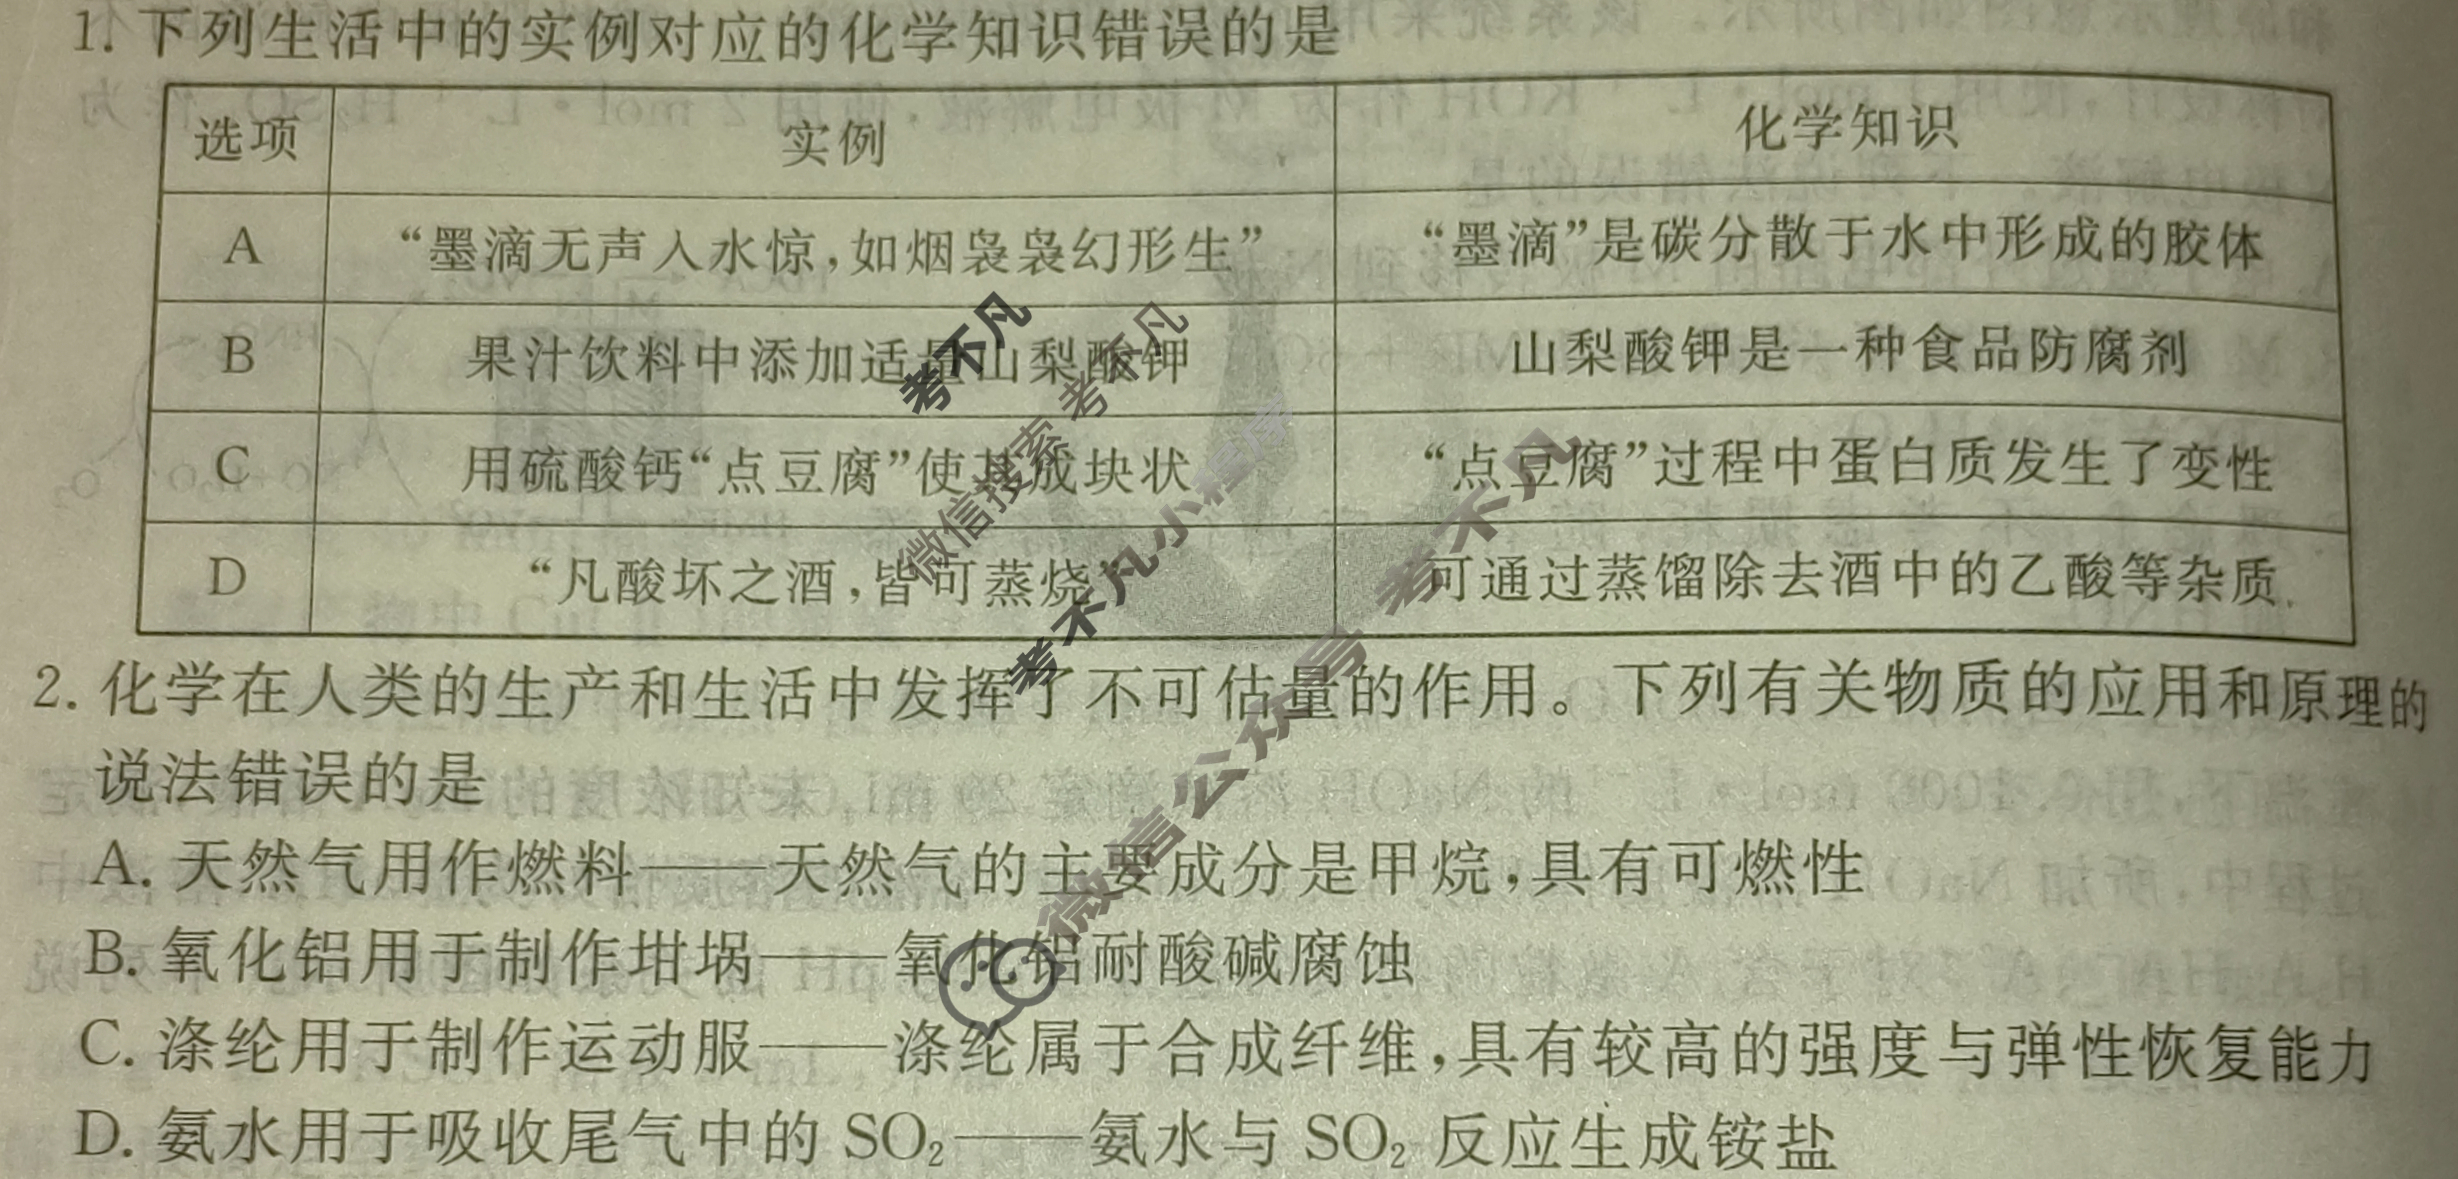 1. 下列生活中的实例对应的化学知识错误的是
选项 实例 化学知识
A “墨滴无声入水惊,如烟袅袅幻形生” “墨滴”是碳分散于水中形成的胶体
B 果汁饮料中添加适量山梨酸钾 山梨酸钾是一种食品防腐剂
C 用硫酸钙“点豆腐”使其成块状 “点豆腐”过程中蛋白质发生了变性
D “凡酸坏之酒,皆可蒸烧” 可通过蒸馏除去酒中的乙酸等杂质
2. 化学在人类的生产和生活中发挥了不可估量的作用。下列有关物质的应用和原理的
说法错误的是
A. 天然气用作燃料——天然气的主要成分是甲烷,具有可燃性
B. 氧化铝用于制作坩埚——氧化铝耐酸碱腐蚀
C. 涤纶用于制作运动服——涤纶属于合成纤维,具有较高的强度与弹性恢复能力
D. 氨水用于吸收尾气中的 SO₂——氨水与 SO₂ 反应生成铵盐
考不凡
微信搜索 考不凡
考不凡小程序
微信公众号 考不凡